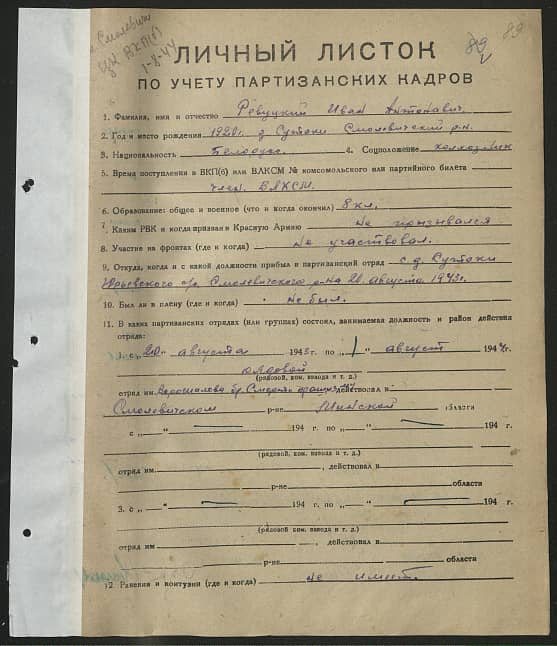 Смолевичи
ЦК ВКП(б)
1-8-44
89
89
ЛИЧНЫЙ ЛИСТОК
ПО УЧЕТУ ПАРТИЗАНСКИХ КАДРОВ
1. Фамилия, имя и отчество Ревуцкий Иван Антонович.
2. Год и место рождения 1920г. д Сутоки Смолевичский р-н.
3. Национальность Белорус. 4. Соцположение колхозник
5. Время поступления в ВКП(б) или ВЛКСМ № комсомольского или партийного билета
член. ВЛКСМ.
6. Образование: общее и военное (что и когда окончил) 8 кл.
7. Каким РВК и когда призван в Красную Армию Не призывался
8. Участие на фронтах (где и когда) Не участвовал.
9. Откуда, когда и с какой должности прибыл в партизанский отряд с д. Сутоки
Юрьевского с/с. Смолевичского р-на 20 августа 1943г.
10. Был ли в плену (где и когда) не был.
11. В каких партизанских отрядах (или группах) состоял, занимаемая должность и район действия
отряда:
1. с „20" августа 1943 г. по „1" август 1944г.
рядовой
(рядовой, ком. взвода и т. д.)
отряд им. Ворошилова бр. Смерть фашизму действовал в
Смолевичском р-не Минской области
с „ " 194 г. по „ " 194 г.
(рядовой, ком. взвода и т. д.)
отряд им. , действовал в
р-не области
3. с „ " 194 г. по „ " 194 г.
(рядовой, ком. взвода и т. д.)
отряд им. , действовал в
р-не области
12. Ранения и контузии (где и когда) Не имеет.